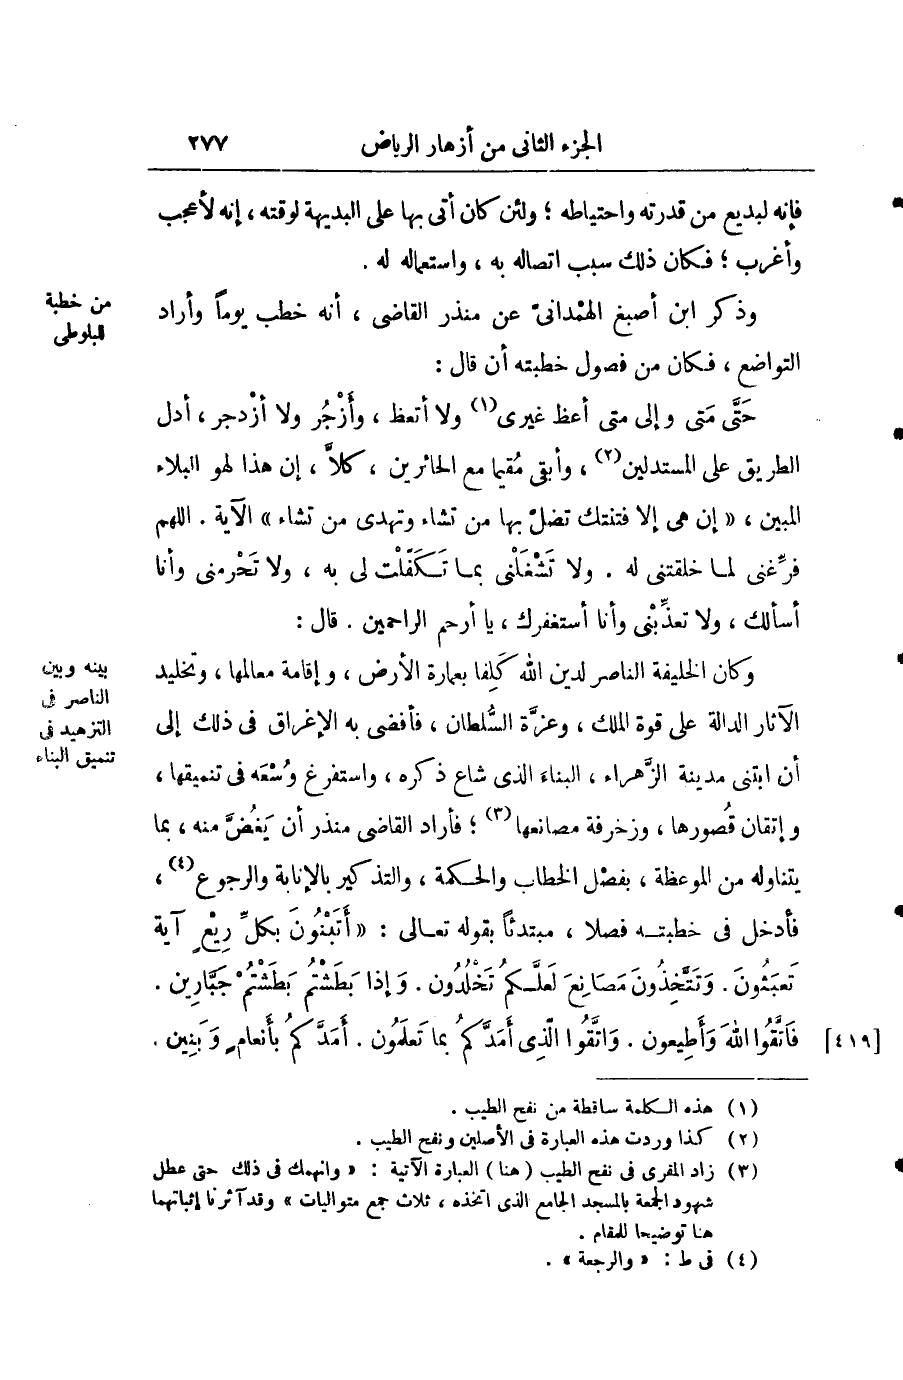 الجزء الثانى من أزهار الرياض ٢٧٧
فإنه لبديع من قدرته واحتياطه ؛ ولئن كان أتى بها على البديهة لوقته ، إنه لأعجب
وأغرب ؛ فكان ذلك سبب اتصاله به ، واستعماله له .
من خطبة
البلوطى
وذكر ابن أصبغ الهمْدانىّ عن منذر القاضى ، أنه خطب يوماً وأراد
التواضع ، فكان من فصول خطبته أن قال :
حَتَّى مَتى وإلى متى أعظ غيرى(١) ولا أتعظ ، وأَزْجُر ولا أزْدجر ، أدل
الطريق على المستدلين(٢) ، وأبقى مُقيما مع الحائرين ، كلاَّ ، إن هذا لهو البلاء
المبين ، « إن هى إلا فتنتك تضلّ بها من تشاء وتهدى من تشاء » الآية . اللهم
فرِّغنى لما خلقتنى له . ولا تَشْغَلْنى بما تَكَفَّلْت لى به ، ولا تَحْرمنى وأنا
أسألك ، ولا تعذِّبْنى وأنا أستغفرك ، يا أرحم الراحمين . قال :
بينه وبين
الناصر فى
التزهيد فى
تنميق البناء
وكان الخليفة الناصر لدين الله كَلِفا بعمارة الأرض ، وإقامة معالمها ، وتخليد
الآثار الدالة على قوة الملك ، وعزَّة السُّلطان ، فأفضى به الإغراق فى ذلك إلى
أن ابتنى مدينة الزَّهراء ، البناءَ الذى شاع ذكره ، واستفرغ وُسْعَه فى تنميقها ،
وإتقان قُصورها ، وزخرفة مصانعها(٣) ؛ فأراد القاضى منذر أن يَغُضَّ منه ، بما
يتناوله من الموعظة ، بفصْل الخطاب والحكمة ، والتذكير بالإنابة والرجوع(٤) ،
فأدخل فى خطبته فصلا ، مبتدئاً بقوله تعالى : « أَتَبْنُونَ بكلِّ رِيْعٍ آية
تَعبَثُونَ . وَتَتَّخِذُونَ مَصَانِعَ لَعلَّكمُ تَخْلُدُون . وَإذا بَطَشْتُم بَطَشْتُمْ جَبَّارِين .
فَاتَّقُوا اللهَ وَأَطِيعون . وَاتَّقُوا الّذِى أَمَدَّ كمُ بما تَعلَمُون . أمَدَّ كمُ بأَنعامٍ وَبَنِين .
[٤١٩]
(١) هذه الكلمة ساقطة من نفح الطيب .
(٢) كذا وردت هذه العبارة فى الأصلين ونفح الطيب .
(٣) زاد المقرى فى نفح الطيب (هنا) العبارة الآتية : « وانهمك فى ذلك حتى عطل
شهود الجمعة بالمسجد الجامع الذى اتخذه ، ثلاث جمع متواليات » وقد آثرنا إثباتها
هنا توضيحا للمقام .
(٤) فى ط : « والرجعة » .